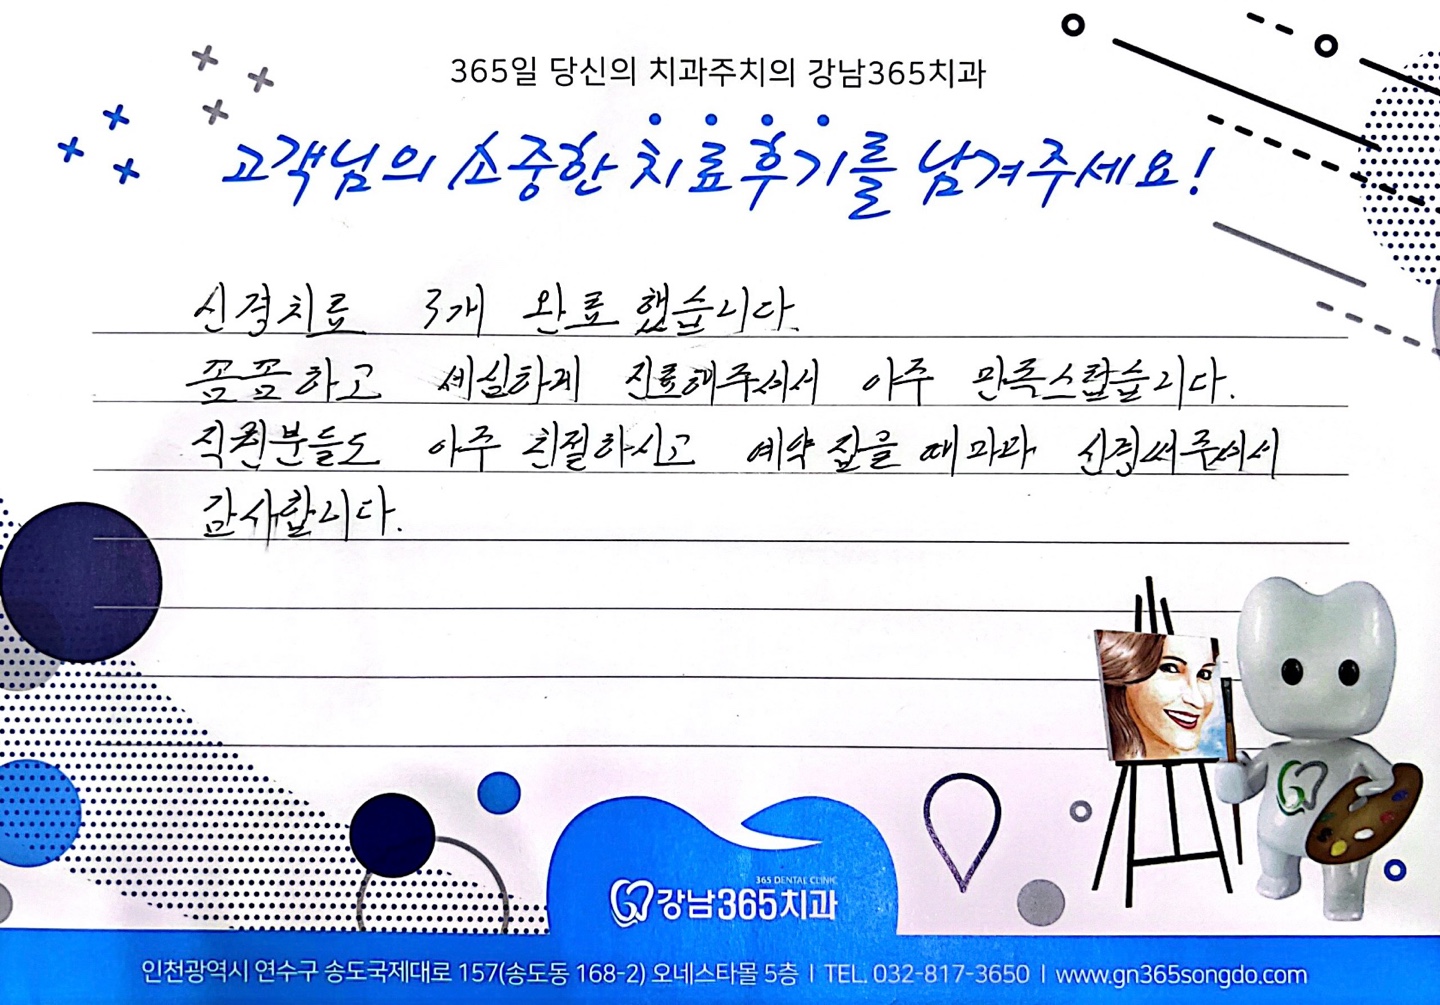 365일 당신의 치과주치의 강남365치과
고객님의 소중한 치료후기를 남겨주세요!
신경치료 3개 완료했습니다.
꼼꼼하고 세심하게 진료해주셔서 아주 만족스럽습니다.
직원분들도 아주 친절하시고 예약 잡을 때마다 신경써주셔서
감사합니다.
365 DENTAL CLINIC
강남365치과
인천광역시 연수구 송도국제대로 157(송도동 168-2) 오네스타몰 5층 | TEL. 032-817-3650 | www.gn365songdo.com